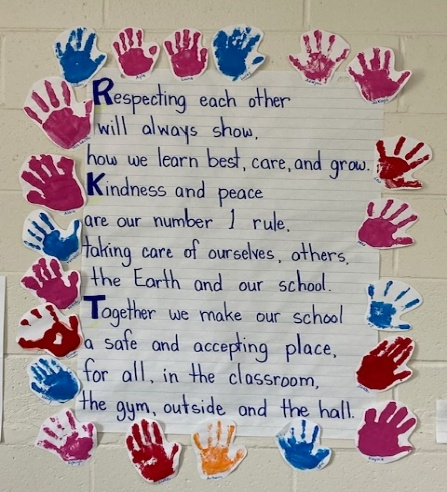 Respecting each other
will always show,
how we learn best, care, and grow.
Kindness and peace
are our number 1 rule,
taking care of ourselves, others,
the Earth and our school.
Together we make our school
a safe and accepting place,
for all, in the classroom,
the gym, outside and the hall.